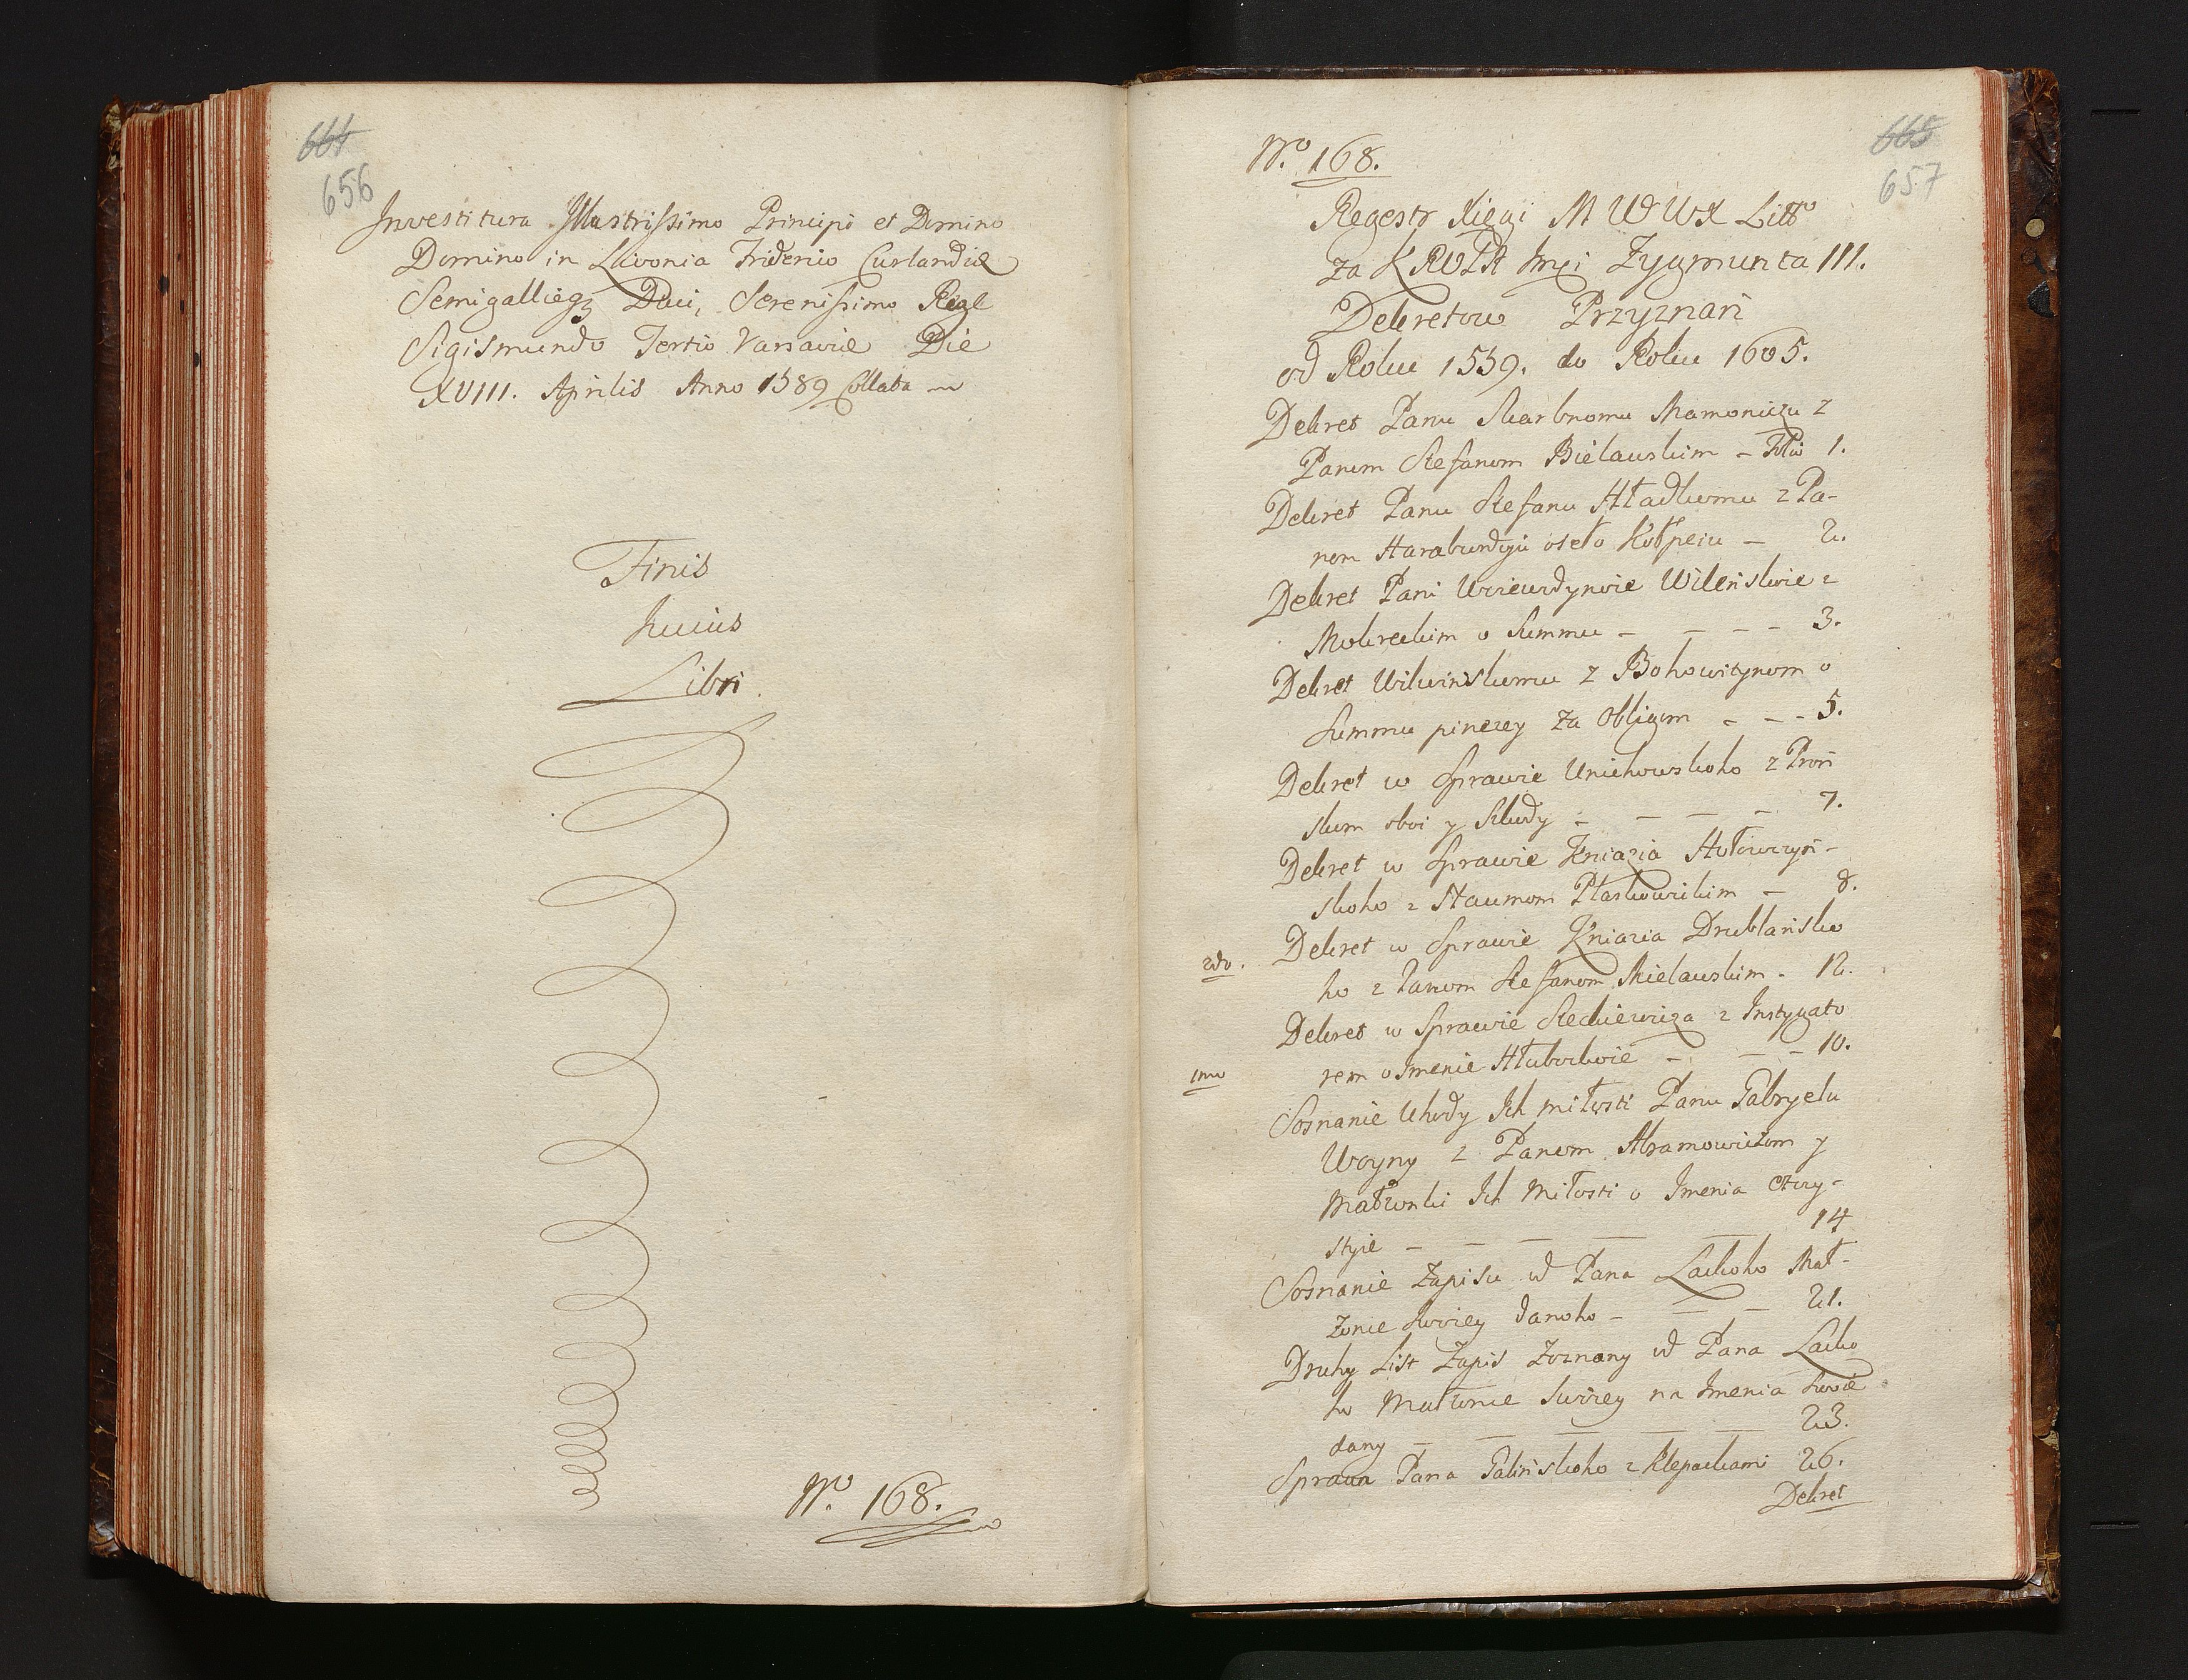 664
656
Investitura Illustrissimo Principi et Domino
Domino in Livonia Friderico Curlandiæ
Semigalliæq3 Duci, Serenissimo Rege
Sigismundo Tertio Varsaviæ Die
XVIII. Aprilis Anno 1589 Collata
Finis
huius
Libri.
No. 168.
665
657
No. 168.
Regestr Xięgi M W WX Litto
za KROLA Imęi Zygmunta III.
Dekretow Przyznań
od Roku 1559. do Roku 1605.
Dekret Panu Skarbnomu Mamoniczu z
Panom Stefanom Bielawskim – Folio 1.
Dekret Panu Stefanu Hładkomu z Pa-
nom Haraburdoju oseło Kołpeiu – 2.
Dekret Pani Woiewodynoie Wilenskoie z
Mokreckim o Summu – – – – 3.
Dekret Wilwinskomu z Bohowitynom o
Summu pinezey za Obligom – – – 5.
Dekret w Sprawie Uniehowskoho z Pron
skim oboi y Szkody – – – – 7.
Dekret w Sprawie Kniazia Hołowczyń-
skoho z Naumom Płaskowickim – 8.
2do. Dekret w Sprawie Kniazia Drublańsko
ho z Panom Stefanom Mielawskim. – 12.
Dekret w Sprawie Steckiewicza z Instygato
1mo rem o Imenie Hłubockoie – – – 10.
Soznanie Uhody Ich miłosti Panu Gabryelu
Woyny z Panom Abramowiczom y
Małżonki Ich Miłosti o Imenia Czery-
styie – – – – – 14
Soznanie Zapisu od Pana Lackoho Mał-
żonce Swoiey danoho – – – 21.
Druhy List Zapis Zoznany od Pana Lacko
ho Małżonce Swoiey na Imenia Swoie
dany – – – – – 23.
Sprawa Pana Galinskoho z Klepackami 26.
Dekret